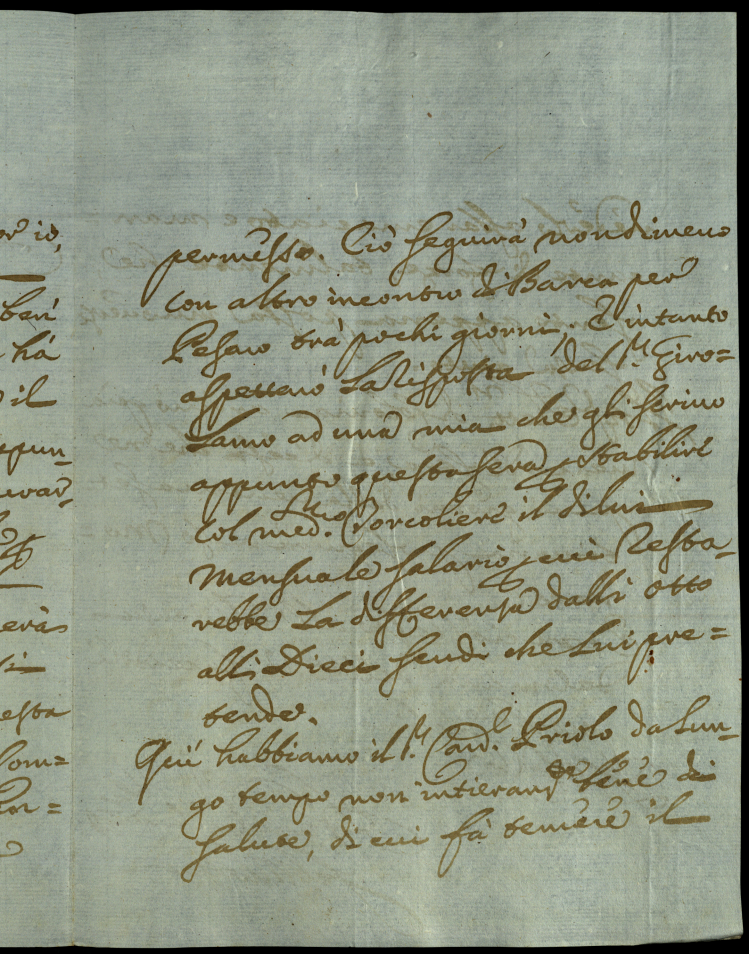 permesso. Ciò seguirà nondimeno
con altro incontro di Barca per
Pesaro trà pochi giorni, E intanto
aspetterò La Risposta del S.r Giro=
Lamo ad una mia che gli scrivo
appunto questa sera p stabilire
col med.mo Torcoliere il di lui
mensuale salario, p cui Resta-
rebbe La differenza dalli otto
alli Dieci scudi che Lui pre=
tende.
Quì habbiamo il S.r Card.l Priolo da Lun-
go tempo non intieram.te bene di
salute, di cui fà temere il
or io,
ben
hà
il
ppun-
erà
esta
Com=